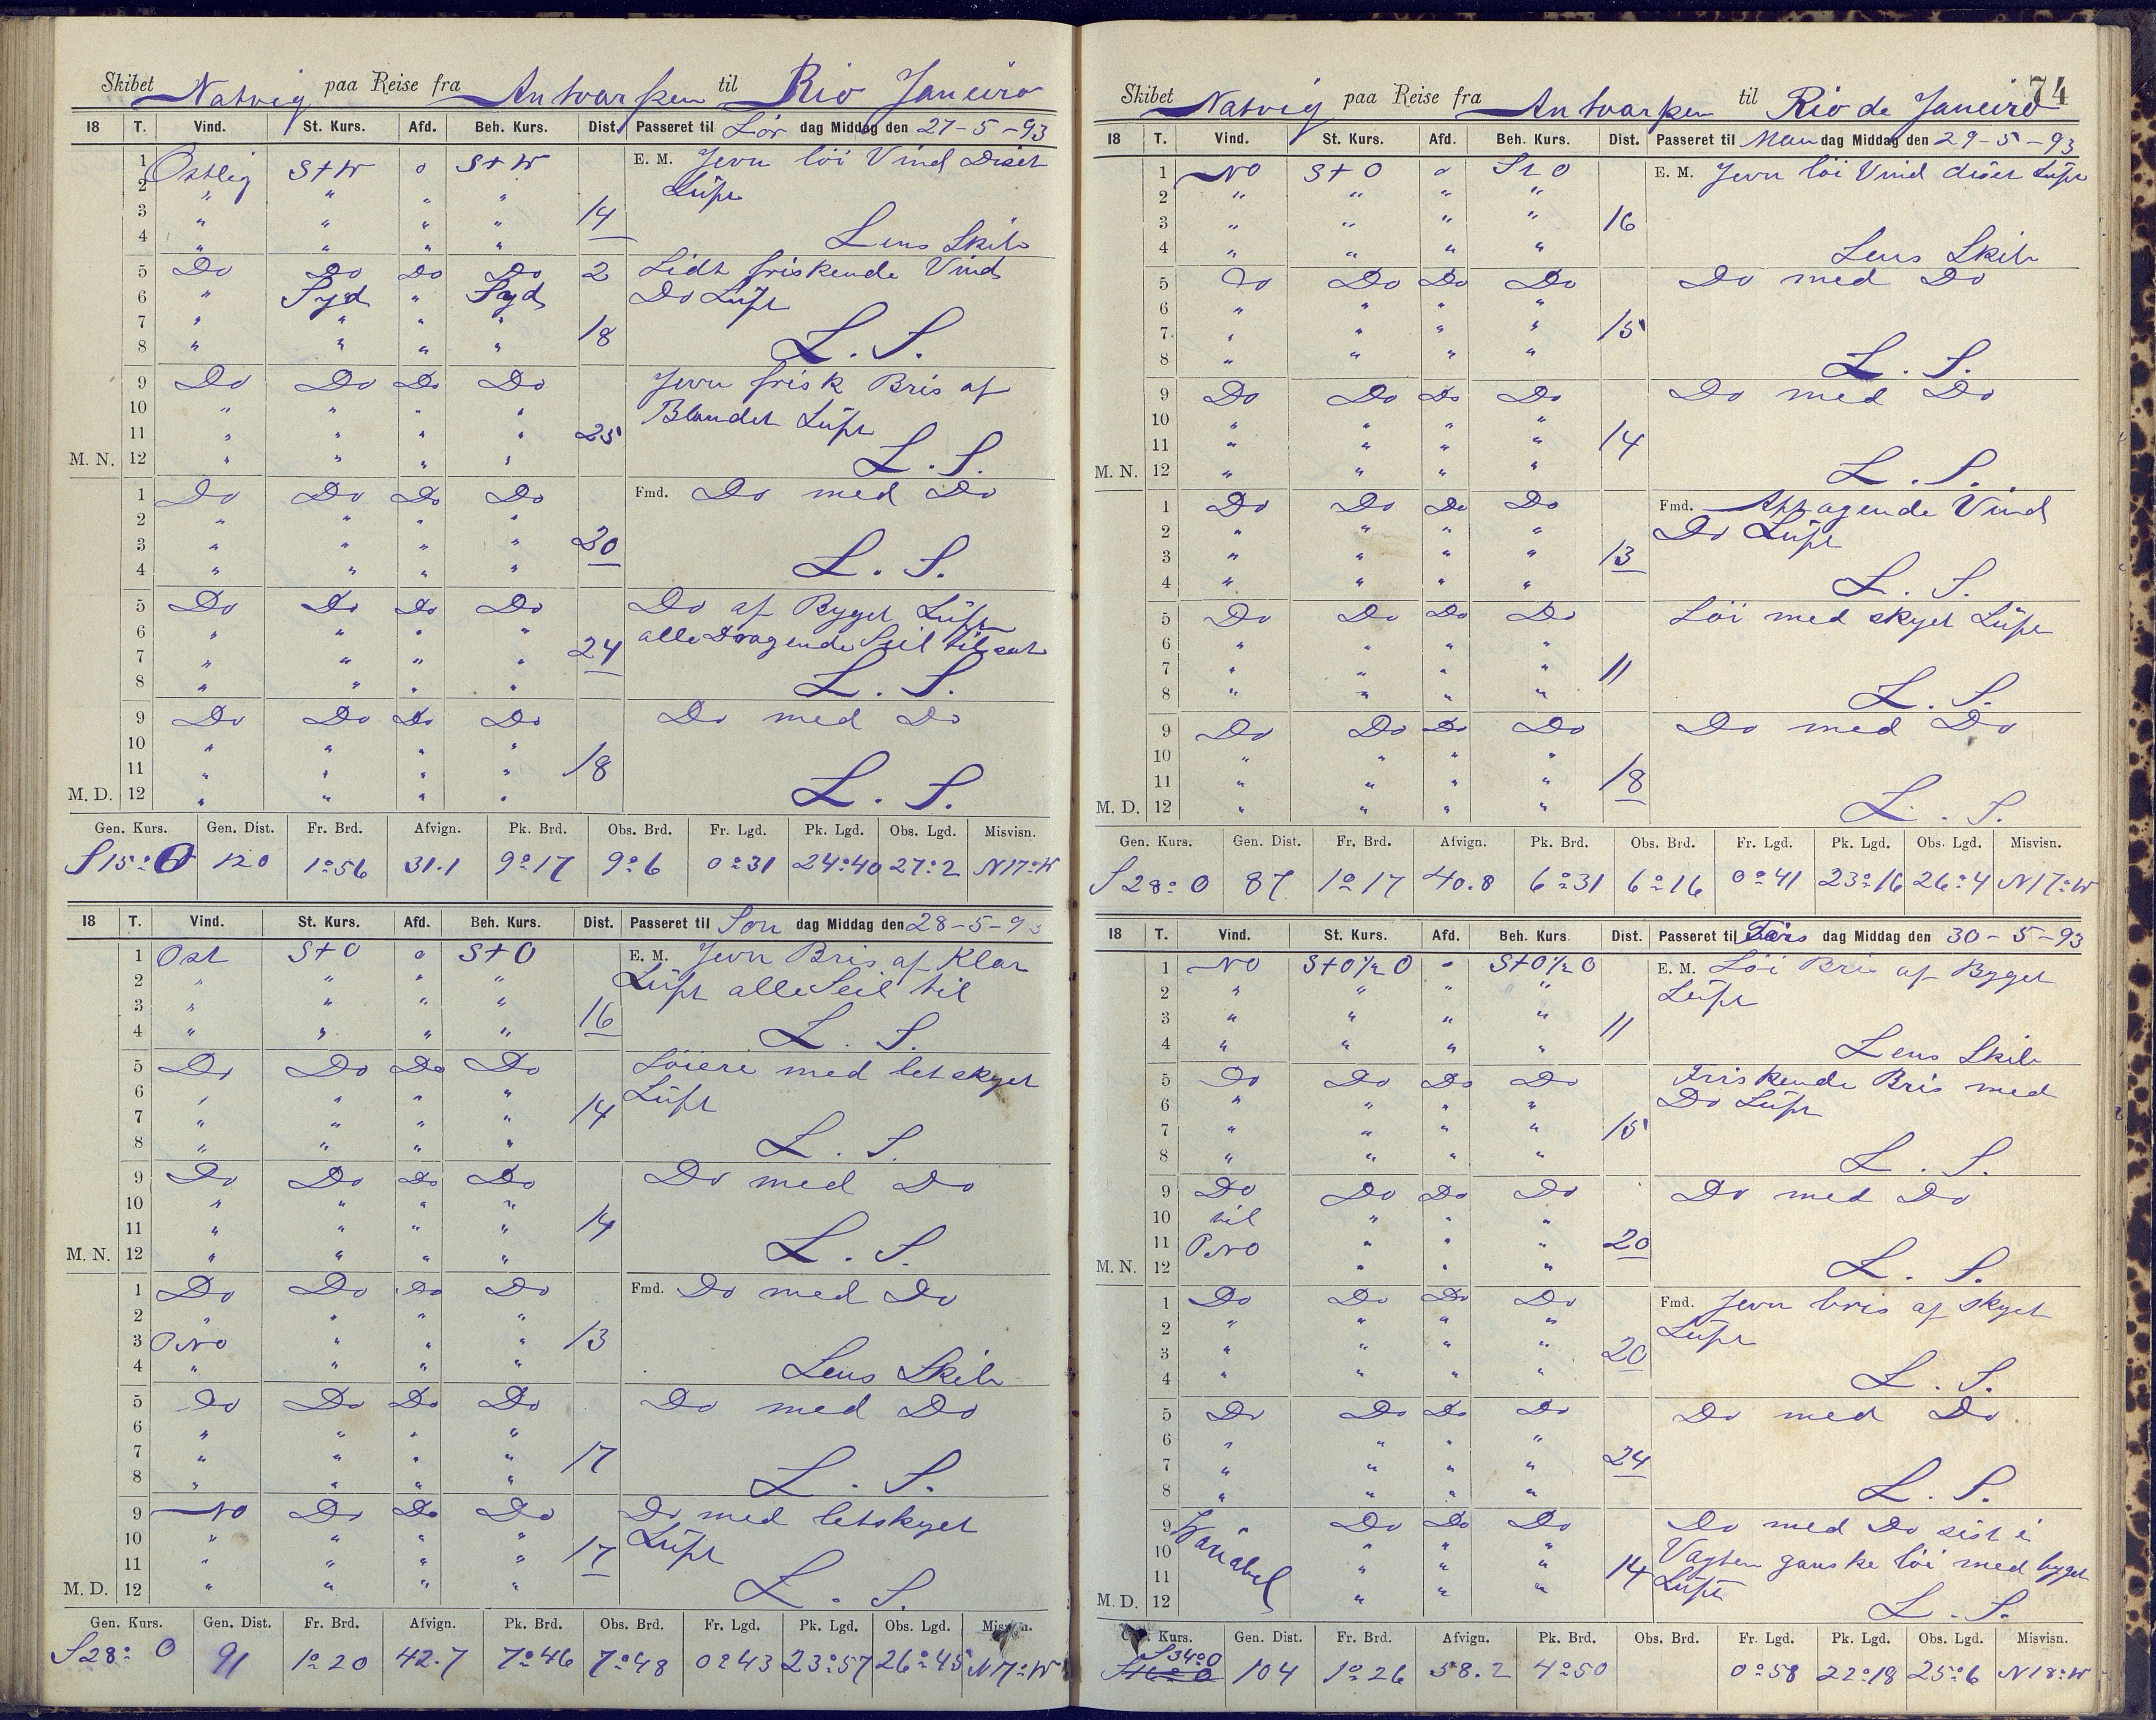 Skibet Natvig paa Reise fra Antvarpen til Rio Janeiro
18 T. Vind. St. Kurs. Afd. Beh. Kurs. Dist. Passeret til Lør dag Middag den 27-5-93
1 Østlig S t W 0 S t W E. M. Jevn löi Vind Diset
2 " " " " Lüft
3 " " " " 14
4 " " " " Lens Skib
5 Do Do Do Do 2 Lidt friskende Vind
6 " Syd " Syd Do Lüft
7 " " " " 18
8 " " " " L. S.
9 Do Do Do Do Jevn frisk Bris af
10 " " " " Blandet Lüft
11 " " " " 25
M. N. 12 " " " " L. S.
1 Do Do Do Do Fmd. Do med Do
2 " " " "
3 " " " " 20
4 " " " " L. S.
5 Do Do Do Do Do af Byget Lüft
6 " " " " alle Dragende Seil tilsat
7 " " " " 24
8 " " " " L. S.
9 Do Do Do Do Do med Do
10 " " " "
11 " " " " 18
M. D. 12 " " " " L. S.
Gen. Kurs. Gen. Dist. Fr. Brd. Afvign. Pk. Brd. Obs. Brd. Fr. Lgd. Pk. Lgd. Obs. Lgd. Misvisn.
S 15° O 120 1°56 31.1 9°17 9°6 0°31 24°40 27°2 N 17° W
18 T. Vind. St. Kurs. Afd. Beh. Kurs. Dist. Passeret til Søn dag Middag den 28-5-93
1 Ost S t O 0 S t O E. M. Jevn Bris af Klar
2 " " " " Lüft alle Seil til
3 " " " " 16
4 " " " " L. S.
5 Do Do Do Do Löiere med letskyet
6 " " " " Lüft
7 " " " " 14
8 " " " " L. S.
9 Do Do Do Do Do med Do
10 " " " "
11 " " " " 14
M. N. 12 " " " " L. S.
1 Do Do Do Do Fmd. Do med Do
2 " " " "
3 ONO " " " 13
4 " " " " Lens Skib
5 Do Do Do Do Do med Do
6 " " " "
7 " " " " 17
8 " " " " L. S.
9 NO Do Do Do Do med letskyet
10 " " " " Lüft
11 " " " " 17
M. D. 12 " " " " L. S.
Gen. Kurs. Gen. Dist. Fr. Brd. Afvign. Pk. Brd. Obs. Brd. Fr. Lgd. Pk. Lgd. Obs. Lgd. Misvisn.
S 28° O 91 1°20 42.7 7°46 7°48 0°43 23°57 26°45 N 17° W
74
Skibet Natvig paa Reise fra Antvarpen til Rio de Janeiro
18 T. Vind. St. Kurs. Afd. Beh. Kurs. Dist. Passeret til Man dag Middag den 29-5-93
1 NO S t O 0 S t O E. M. Jevn löi Vind diset Lüft
2 " " " "
3 " " " " 16
4 " " " " Lens Skib
5 Do Do Do Do Do med Do
6 " " " "
7 " " " " 15
8 " " " " L. S.
9 Do Do Do Do Do med Do
10 " " " "
11 " " " " 14
M. N. 12 " " " " L. S.
1 Do Do Do Do Fmd. Aftagende Vind
2 " " " " Do Lüft
3 " " " " 13
4 " " " " L. S.
5 Do Do Do Do Löi med skyet Lüft
6 " " " "
7 " " " " 11
8 " " " " L. S.
9 Do Do Do Do Do med Do
10 " " " "
11 " " " " 18
M. D. 12 " " " " L. S.
Gen. Kurs. Gen. Dist. Fr. Brd. Afvign. Pk. Brd. Obs. Brd. Fr. Lgd. Pk. Lgd. Obs. Lgd. Misvisn.
S 28° O 87 1°17 40.8 6°31 6°16 0°41 23°16 26°4 N 17° W
18 T. Vind. St. Kurs. Afd. Beh. Kurs. Dist. Passeret til Tirs dag Middag den 30-5-93
1 NO S t O ½ O " S t O ½ O E. M. Löi Bris af Byget
2 " " " " Lüft
3 " " " "
4 " " " " 11 Lens Skib
5 Do Do Do Do Friskende Bris med
6 " " " " Do Lüft
7 " " " " 15
8 " " " " L. S.
9 Do Do Do Do Do med Do
10 til " " "
11 ONO " " " 20
M. N. 12 " " " L. S.
1 Do Do Do Do Fmd. Jevn bris af skyet
2 " " " " Lüft
3 " " " " 20
4 " " " " L. S.
5 Do Do Do Do Do med Do
6 " " " "
7 " " " " 24
8 " " " " L. S.
9 Variabel Do Do Do Do med Do sist i
10 " " " Vagten ganske löi med byget
11 " " " 14 Lüft
M. D. 12 " " " L. S.
Kurs. Gen. Dist. Fr. Brd. Afvign. Pk. Brd. Obs. Brd. Fr. Lgd. Pk. Lgd. Obs. Lgd. Misvisn.
S 34° O 104 1°26 58.2 4°50 0°58 22°18 25°6 N 18° W